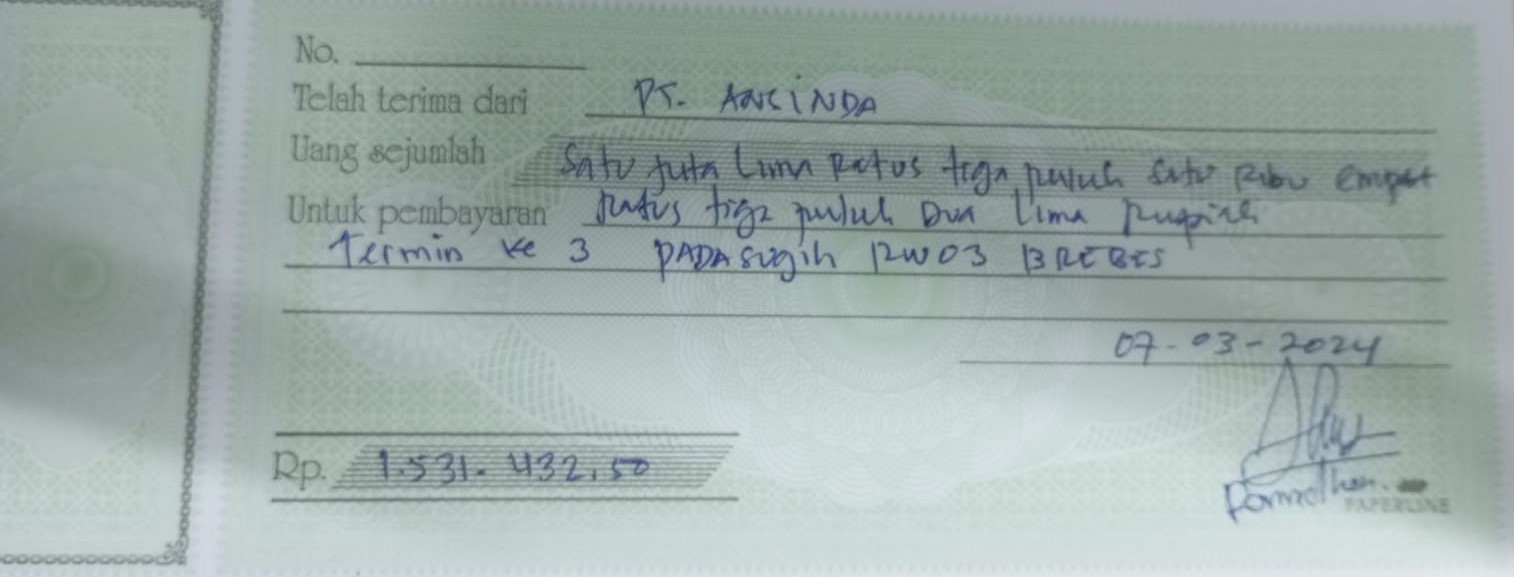 No.
Telah terima dari PT. ARCINDA
Uang sejumlah Satu juta Lima Ratus tiga puluh satu Ribu empat
Untuk pembayaran Ratus tiga puluh Dua Lima Rupiah
Termin ke 3 PADASugih RW03 BREBES
07-03-2024
Rp. 1.531.432,50
PAPERLINE